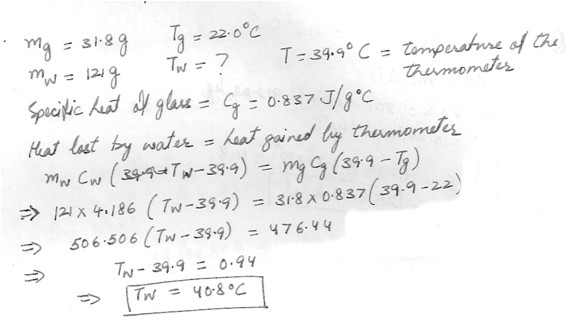 mg = 31.8g Tg = 22.0°C
mw = 121g Tw = ? T = 39.9°C = temperature of the thermometer
Specific heat of glass = Cg = 0.837 J/g°C
Heat lost by water = heat gained by thermometer
mw Cw (Tw - 39.9) = mg Cg (39.9 - Tg)
⇒ 121 x 4.186 (Tw - 39.9) = 31.8 x 0.837 (39.9 - 22)
⇒ 506.506 (Tw - 39.9) = 476.44
⇒ Tw - 39.9 = 0.94
⇒ Tw = 40.8°C